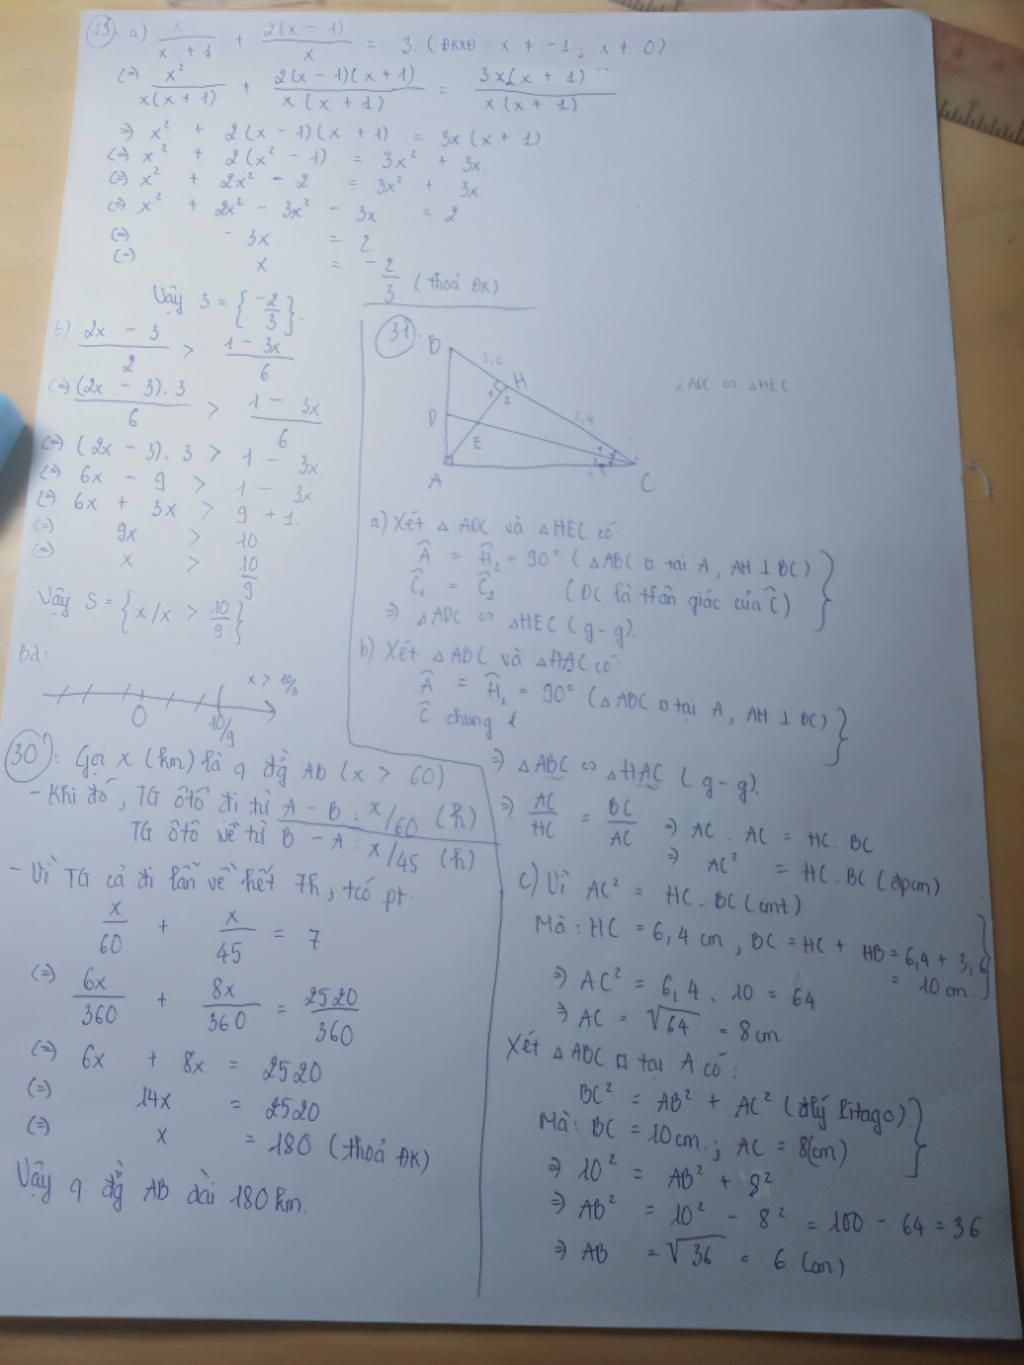 23. a) x/(x + 1) + 2(x - 1)/x = 3. (ĐKXĐ x ≠ -1; x ≠ 0)
(=) x²/x(x + 1) + 2(x - 1)(x + 1)/x(x + 1) = 3x(x + 1)/x(x + 1)
=> x² + 2(x - 1)(x + 1) = 3x(x + 1)
(=) x² + 2(x² - 1) = 3x² + 3x
(=) x² + 2x² - 2 = 3x² + 3x
(=) x² + 2x² - 3x² - 3x = 2
(=) - 3x = 2
(=) x = -2/3 (thoả ĐK)
Vậy S = {-2/3}.
b) (2x - 3)/2 > (1 - 3x)/6
(=) (2x - 3).3/6 > (1 - 3x)/6
(=) (2x - 3).3 > 1 - 3x.
(=) 6x - 9 > 1 - 3x
(=) 6x + 3x > 9 + 1.
(=) 9x > 10
(=) x > 10/9
Vậy S = {x/x > 10/9}.
Bd:
x > 10/9
0 10/9
30: Gọi x (km) là q đg AB (x > 60)
- Khi đó, TG ôtô đi từ A - B : x/60 (h)
TG ôtô về từ B - A : x/45 (h)
- Vì TG cả đi lẫn về hết 7h, tcó pt.
x/60 + x/45 = 7
(=) 6x/360 + 8x/360 = 2520/360
(=) 6x + 8x = 2520
(=) 14x = 2520
(=) x = 180 (thoả ĐK)
Vậy q. đg AB dài 180 km.
31.
B
3,6
H
1 2
D
6,4
E
A
C
△ADC ∽ △HEC
a) Xét △ADC và △HEC có
Â = Ĥ₂ = 90° (△ABC □ tại A, AH ⊥ BC)
Ĉ₁ = Ĉ₂ (DC là phân giác của Ĉ)
=> △ADC ∽ △HEC (g - g).
b) Xét △ABC và △HAC có
Â = Ĥ₂ = 90° (△ABC □ tại A, AH ⊥ BC)
Ĉ chung
=> △ABC ∽ △HAC (g - g).
=> AC/HC = BC/AC => AC . AC = HC . BC
=> AC² = HC . BC (đpcm)
c) Vì AC² = HC . BC (cmt)
Mà : HC = 6,4 cm, BC = HC + HB = 6,4 + 3,6
= 10 cm.
=> AC² = 6,4 . 10 = 64
=> AC = √64 = 8cm
Xét △ABC □ tại A có :
BC² = AB² + AC² (đlý Pitago)
Mà : BC = 10cm ; AC = 8(cm)
=> 10² = AB² + 8²
=> AB² = 10² - 8² = 100 - 64 = 36
=> AB = √36 = 6 (cm)